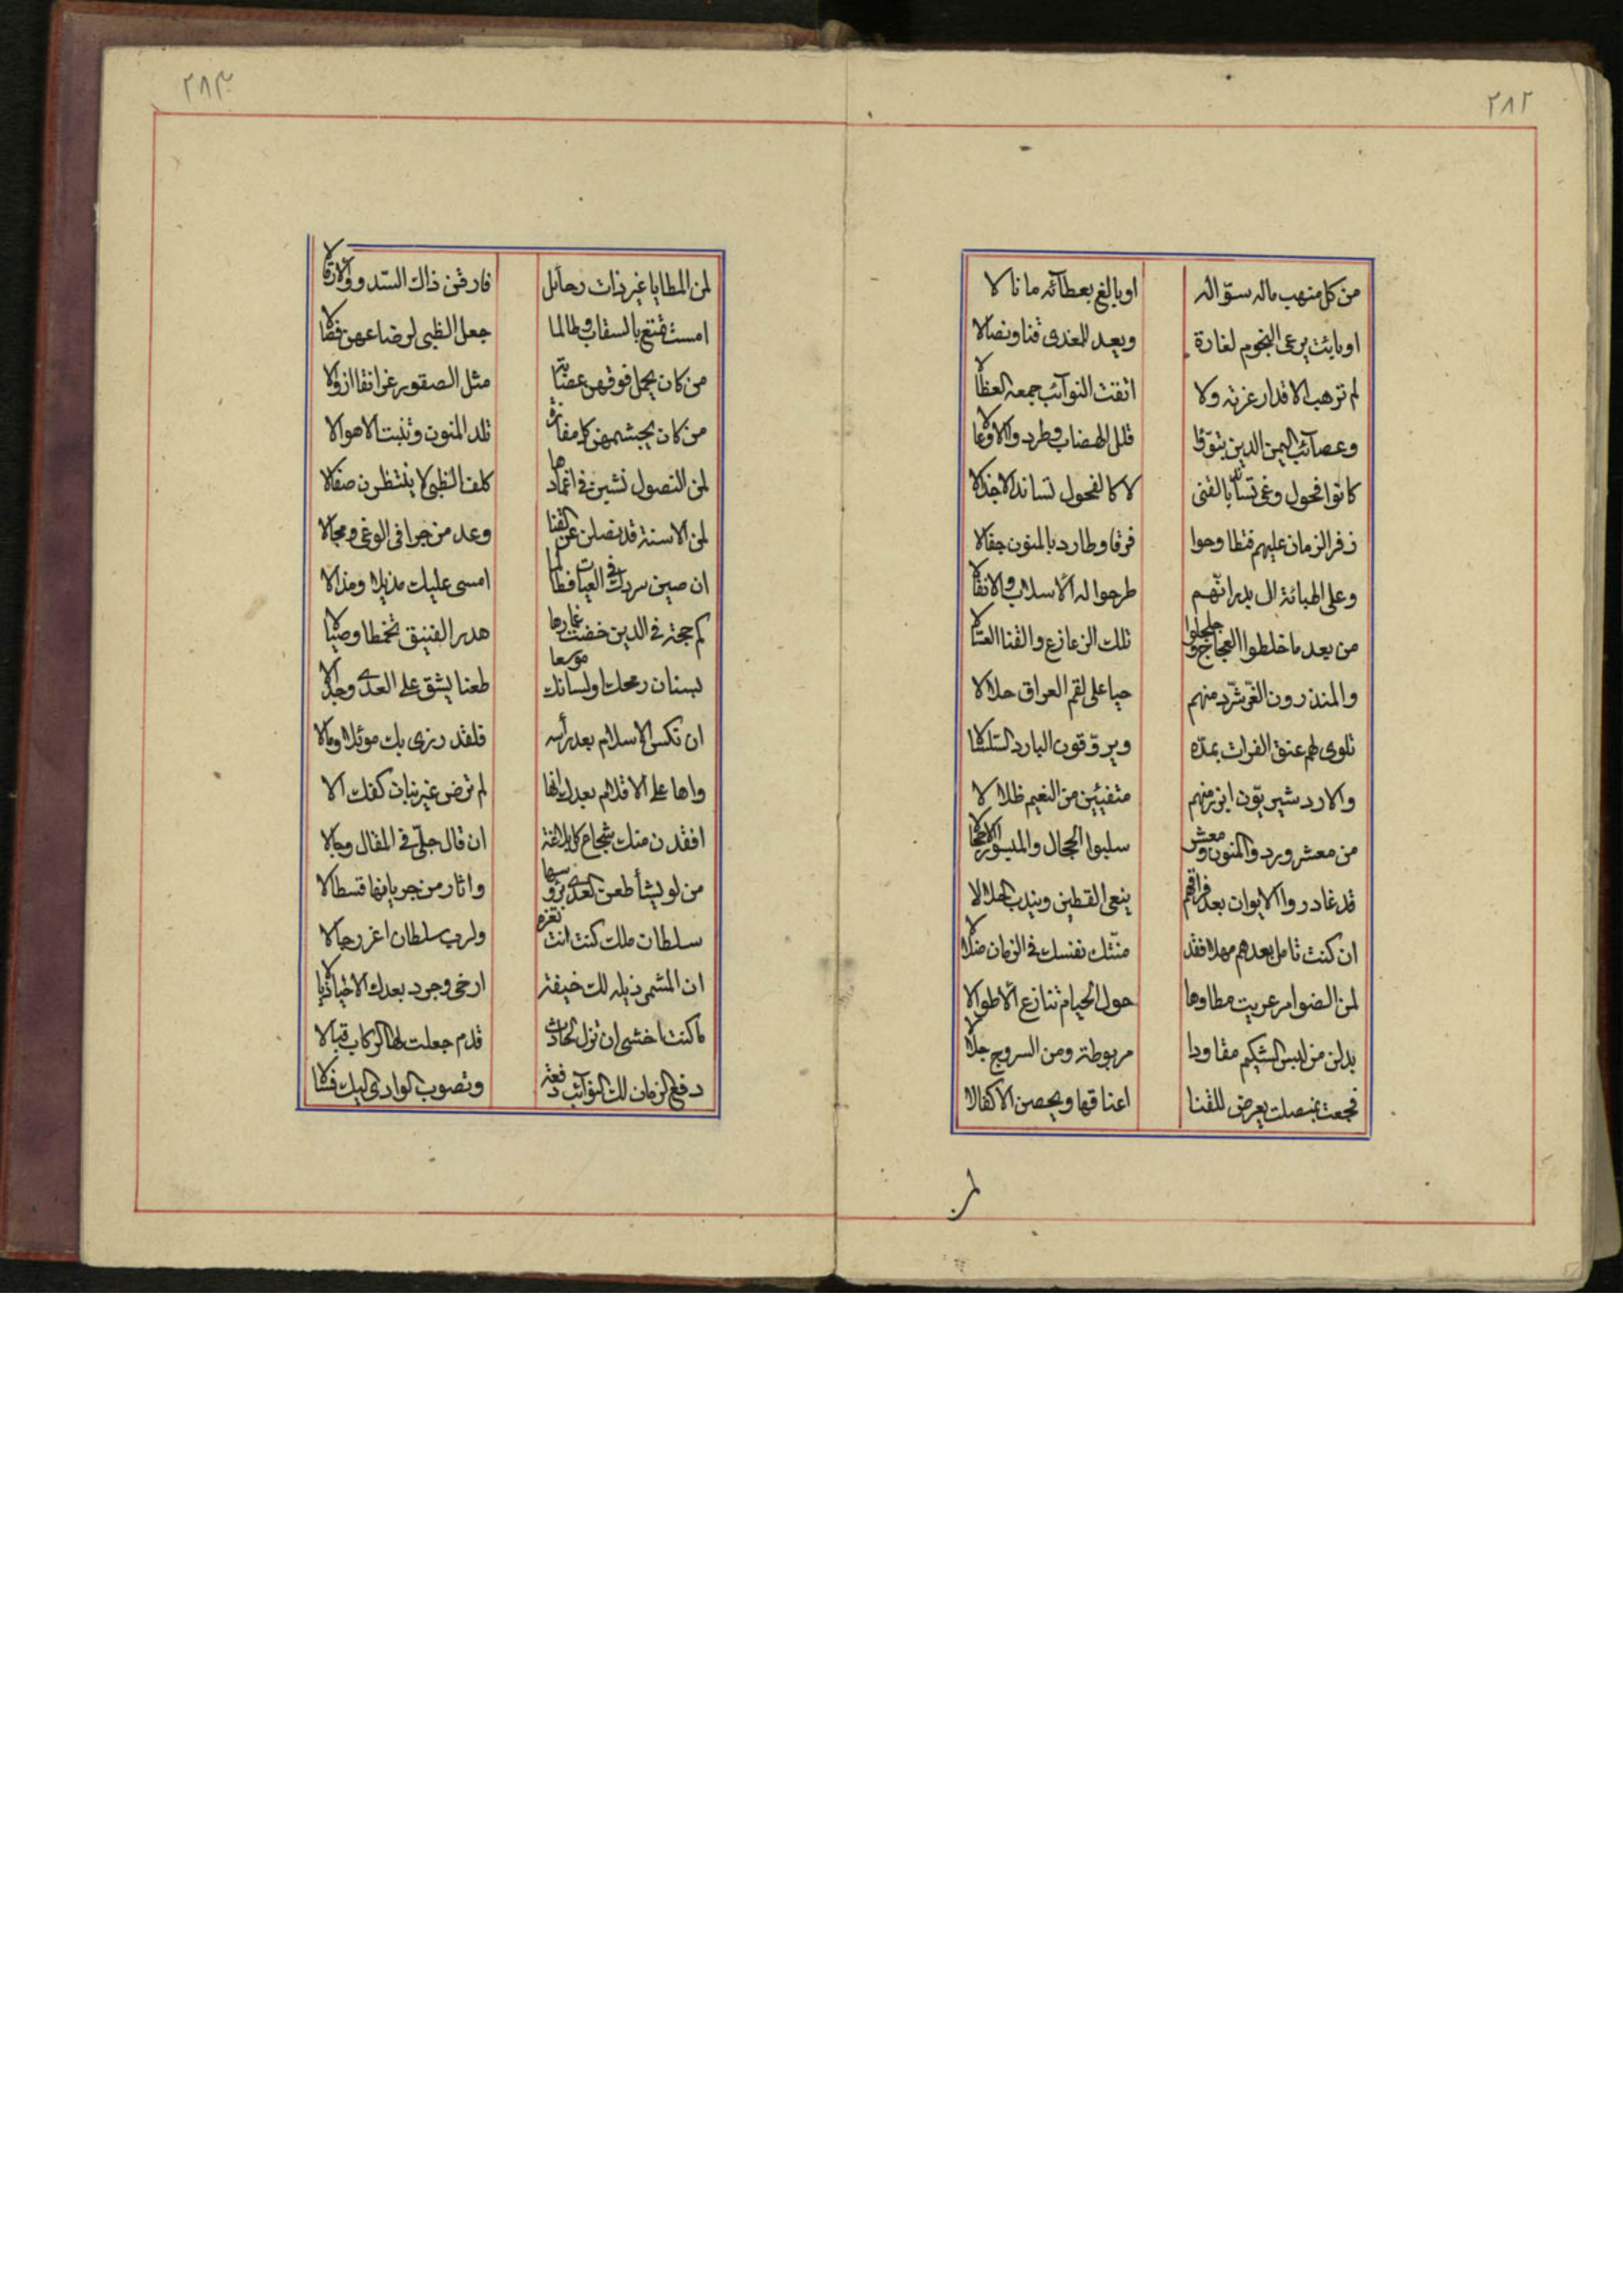 ٢٨٢
من كل منهب ماله سؤاله
او بالغ بعطائه ما نالا
او بائت يرعى النجوم لغارة
ويعيد للعدى قنا ونصالا
لم ترهب الاقدار عزته ولا
اتقت النوائب جمعه
وعصائب اليمن الذين
قلل الهضاب
كانوا فحول وغى بالقنى
لا كالفحول تساند الاجذالا
زفر الزمان عليهم فتطاوحوا
فرقا وطارد بالمنون جفالا
وعلى ال بدر انّهم
طرحوا له الاسلاب والانفالا
من بعد ما خلطوا العجاج وجلجلوا
تلك الزعازع والقنا العسالا
والمنذرون الغرّ شرّد منهم
حيا على لقم العراق حلالا
تلوى لهم عنق الفرات بمدّه
ويروّقون البارد السلسالا
والاردشيريّون ابرز منهم
متفيئين من النعيم ظلالا
من معشر ورد والمنون ومعشر
سلبوا الحجال والبسوا الاحجالا
قد غادروا الايوان بعد فراقهم
ينعى القطين ويندب الحلالا
ان كنت تامل بعدهم مهلا فقد
منّتك نفسك فى الزمان ضلالا
لمن الضوامر عريت مطاوها
حول الخيام تنازع الاطوالا
بدلن من لبس الشكيم مقاودا
مربوطة ومن السروج جلالا
فجعت بمنصلت يعرض للقنا
اعناقها ويحصن الاكفالا
لمن
٢٨٣
لمن المطايا غير ذات رحائل
فارقن ذاك السدو والارقالا
امست تمتنع بالسقاب وطالما
جعل الظبى لرضاعهن فصالا
من كان يحمل فوقهن عصابة
مثل الصقور غرانقا ازوالا
من كان يجشمهن كل مفازة
تلد المنون وتنبت الاهوالا
لمن النصول نشبن فى اغمادها
كلف الظبى لا ينتظرن صقالا
لمن الاسنة قد نصلن عن القنا
وعد من جرا فى الوغى ومجالا
ان صين سردك فى العياب فطالما
امسى عليك مذيلا ومذالا
كم حجة فى الدين خضت غمارها
هدر الفنيق تخمطا وصيالا
بسنان رمحك او لسانك موسعا
طعنا يشق على العدى وجدالا
ان نكس الاسلام بعدك رأسه
فلقد رزى بك موئلا ومالا
واها على الاقلام بعدك انها
لم ترض غير بنان كفك الا
افقدن منك شجاع كل بلاغة
ان قال جلّى فى المقال وجالا
من لو يشأ طعن العدى برؤسها
واثار من جريانها قسطالا
سلطان ملك كنت انت تعزه
ولرب سلطان اعز رجالا
ان المشمر ذيله لك خيفة
ارخى وجرر بعدك الاذيالا
ما كنت اخشى ان تزل لحادث
قدم جعلت لها الركاب قبالا
دفع الزمان لك النوائب دفعة
وتصوب الوادى اليك فسالا